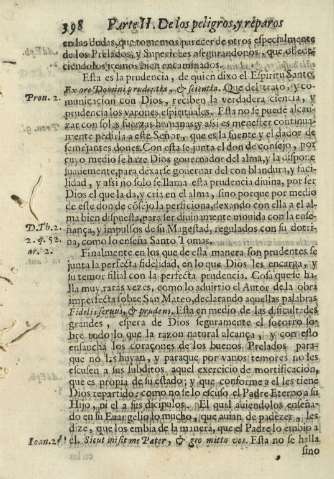 398 Parte II. De los peligros, y reparos
en las dudas, que tomemos parecer de otros especialmente
de los Prelados, y Superiores assegurandonos, que obede-
ciendolos iremos bien encaminados.
Esta es la prudencia, de quien dixo el Espiritu Santo,
Pron. 2. Ex ore Domini prudentia, & scientia. Que del trato, y co-
municacion con Dios, reciben la verdadera ciencia, y
prudencia los varones espirituales. Esta no se puede alcan-
zar con solas fuerzas humanas, y assi es menester continua-
mente pedirla a este Señor, que es la fuente y el dador de
semejantes dones. Con esta se junta el don de consejo, por
cuyo medio se haze Dios governador del alma, y la dispone
suavemente, para dexarse governar del con blandura, y faci-
lidad, y assi no solo se llama esta prudencia divina, por ser
Dios el que la da, y cria en el alma, sino porque por medio
de este don de consejo la perficiona, dexando con ella a el al-
ma bien dispuesta, para ser divinamente movida con la ense-
D. Th. 2. ñança, y impulsos de su Magestad, regulados con su dotri-
2. q. 52. na, como lo enseña Santo Tomas.
ar. 2. Finalmente en los que de esta manera son prudentes se
junta la perfecta fidelidad, en lo que Dios les encarga, y
su temor filial con la perfecta prudencia. Cosa que se ha-
lla muy raras vezes, como lo advirtio el Autor de la obra
imperfecta sobre San Mateo, declarando aquellas palabras
Fidelis servus, & prudens. Esta en medio de las dificultades
grandes, espera de Dios seguramente el socorro so-
bre todo lo que la razon natural alcança; y con esto
ensancha los coraçones de los buenos Prelados para-
que no las huyan, y paraque por vanos temores no les
escusen a sus subditos, aquel exercicio de mortificacion,
que es propia de su estado; y que conforme a el les tiene
Dios repartido: como no se lo escuso el Padre Eterno a su
Hijo, ni el a sus dicipulos. El qual aviendolos enseña-
do en su Evangelio lo mucho, que avian de padezer, les
dize, que los embia de la manera, que el Padre lo embio a
Ioan. 2. el. Sicut misit me Pater, & ego mitto vos. Esta no se halla
sino